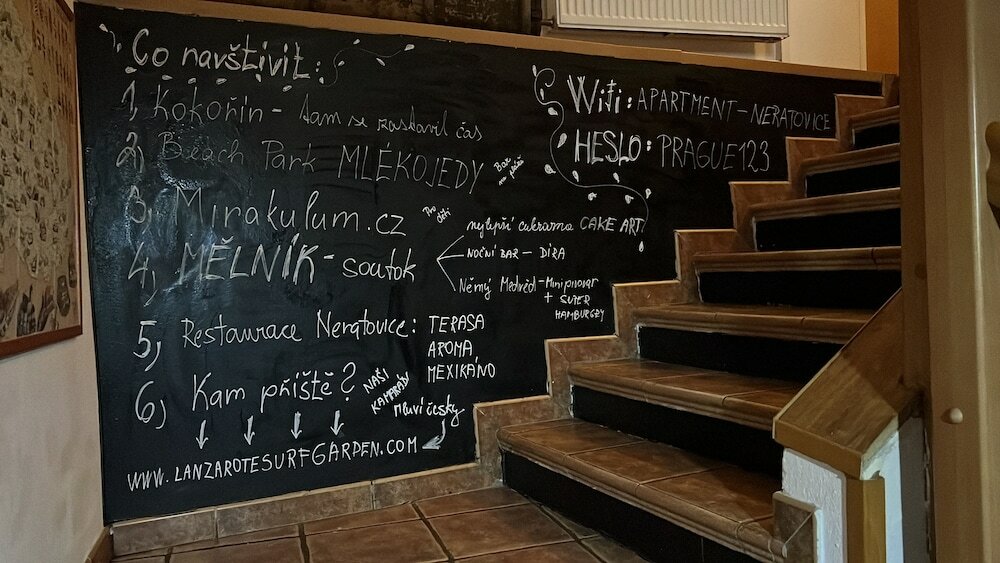 Co navštívit:
1, Kokořín - tam se zastavil čas
2, Beach Park MLÉKOJEDY
Bar
na pláži
3, Mirakulum.cz
Pro
děti
4, MĚLNÍK - soutok
nejlepší cukrárna CAKE ART
NOČNÍ BAR - DÍRA
Němý Medvěd - Minipivovar
+ SUPER
HAMBURGRY
5, Restaurace Neratovice: TERASA
AROMA
MEXIKÁNO
6, Kam příště?
NAŠI
KAMARÁDI
Mluví česky
WWW.LANZAROTESURFGARDEN.COM
Wifi: APARTMENT-NERATOVICE
HESLO: PRAGUE123